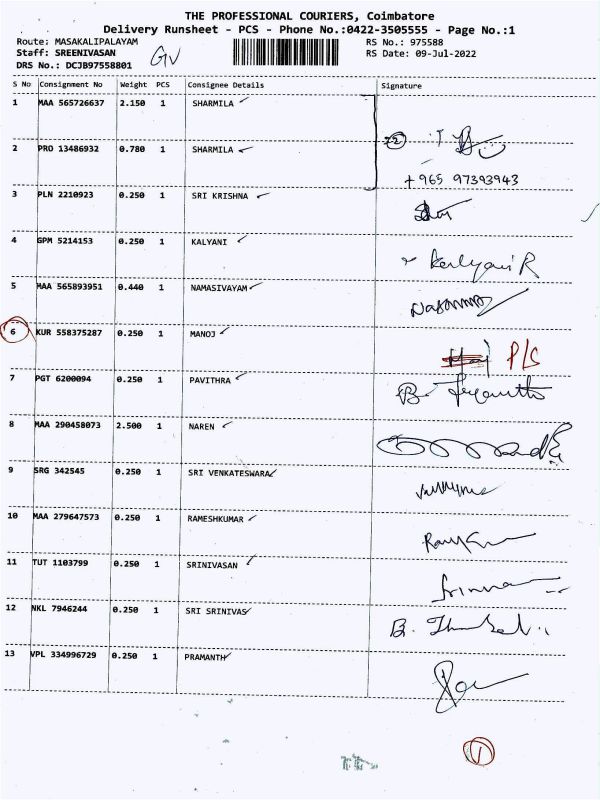 THE PROFESSIONAL COURIERS, Coimbatore
Delivery Runsheet - PCS - Phone No.:0422-3505555 - Page No.:1
Route: MASAKALIPALAYAM RS No.: 975588
Staff: SREENIVASAN GV RS Date: 09-Jul-2022
DRS No.: DCJB97558801
S No Consignment No Weight PCS Consignee Details Signature
1 MAA 565726637 2.150 1 SHARMILA
2 PRO 13486932 0.780 1 SHARMILA
+965 97393943
3 PLN 2210923 0.250 1 SRI KRISHNA
4 GPM 5214153 0.250 1 KALYANI Kalyani R
5 MAA 565893951 0.440 1 NAMASIVAYAM
6 KUR 558375287 0.250 1 MANOJ P/S
7 PGT 6200094 0.250 1 PAVITHRA
8 MAA 290458073 2.500 1 NAREN
9 SRG 342545 0.250 1 SRI VENKATESWARA
10 MAA 279647573 0.250 1 RAMESHKUMAR
11 TUT 1103799 0.250 1 SRINIVASAN
12 NKL 7946244 0.250 1 SRI SRINIVAS
13 VPL 334996729 0.250 1 PRAMANTH
1